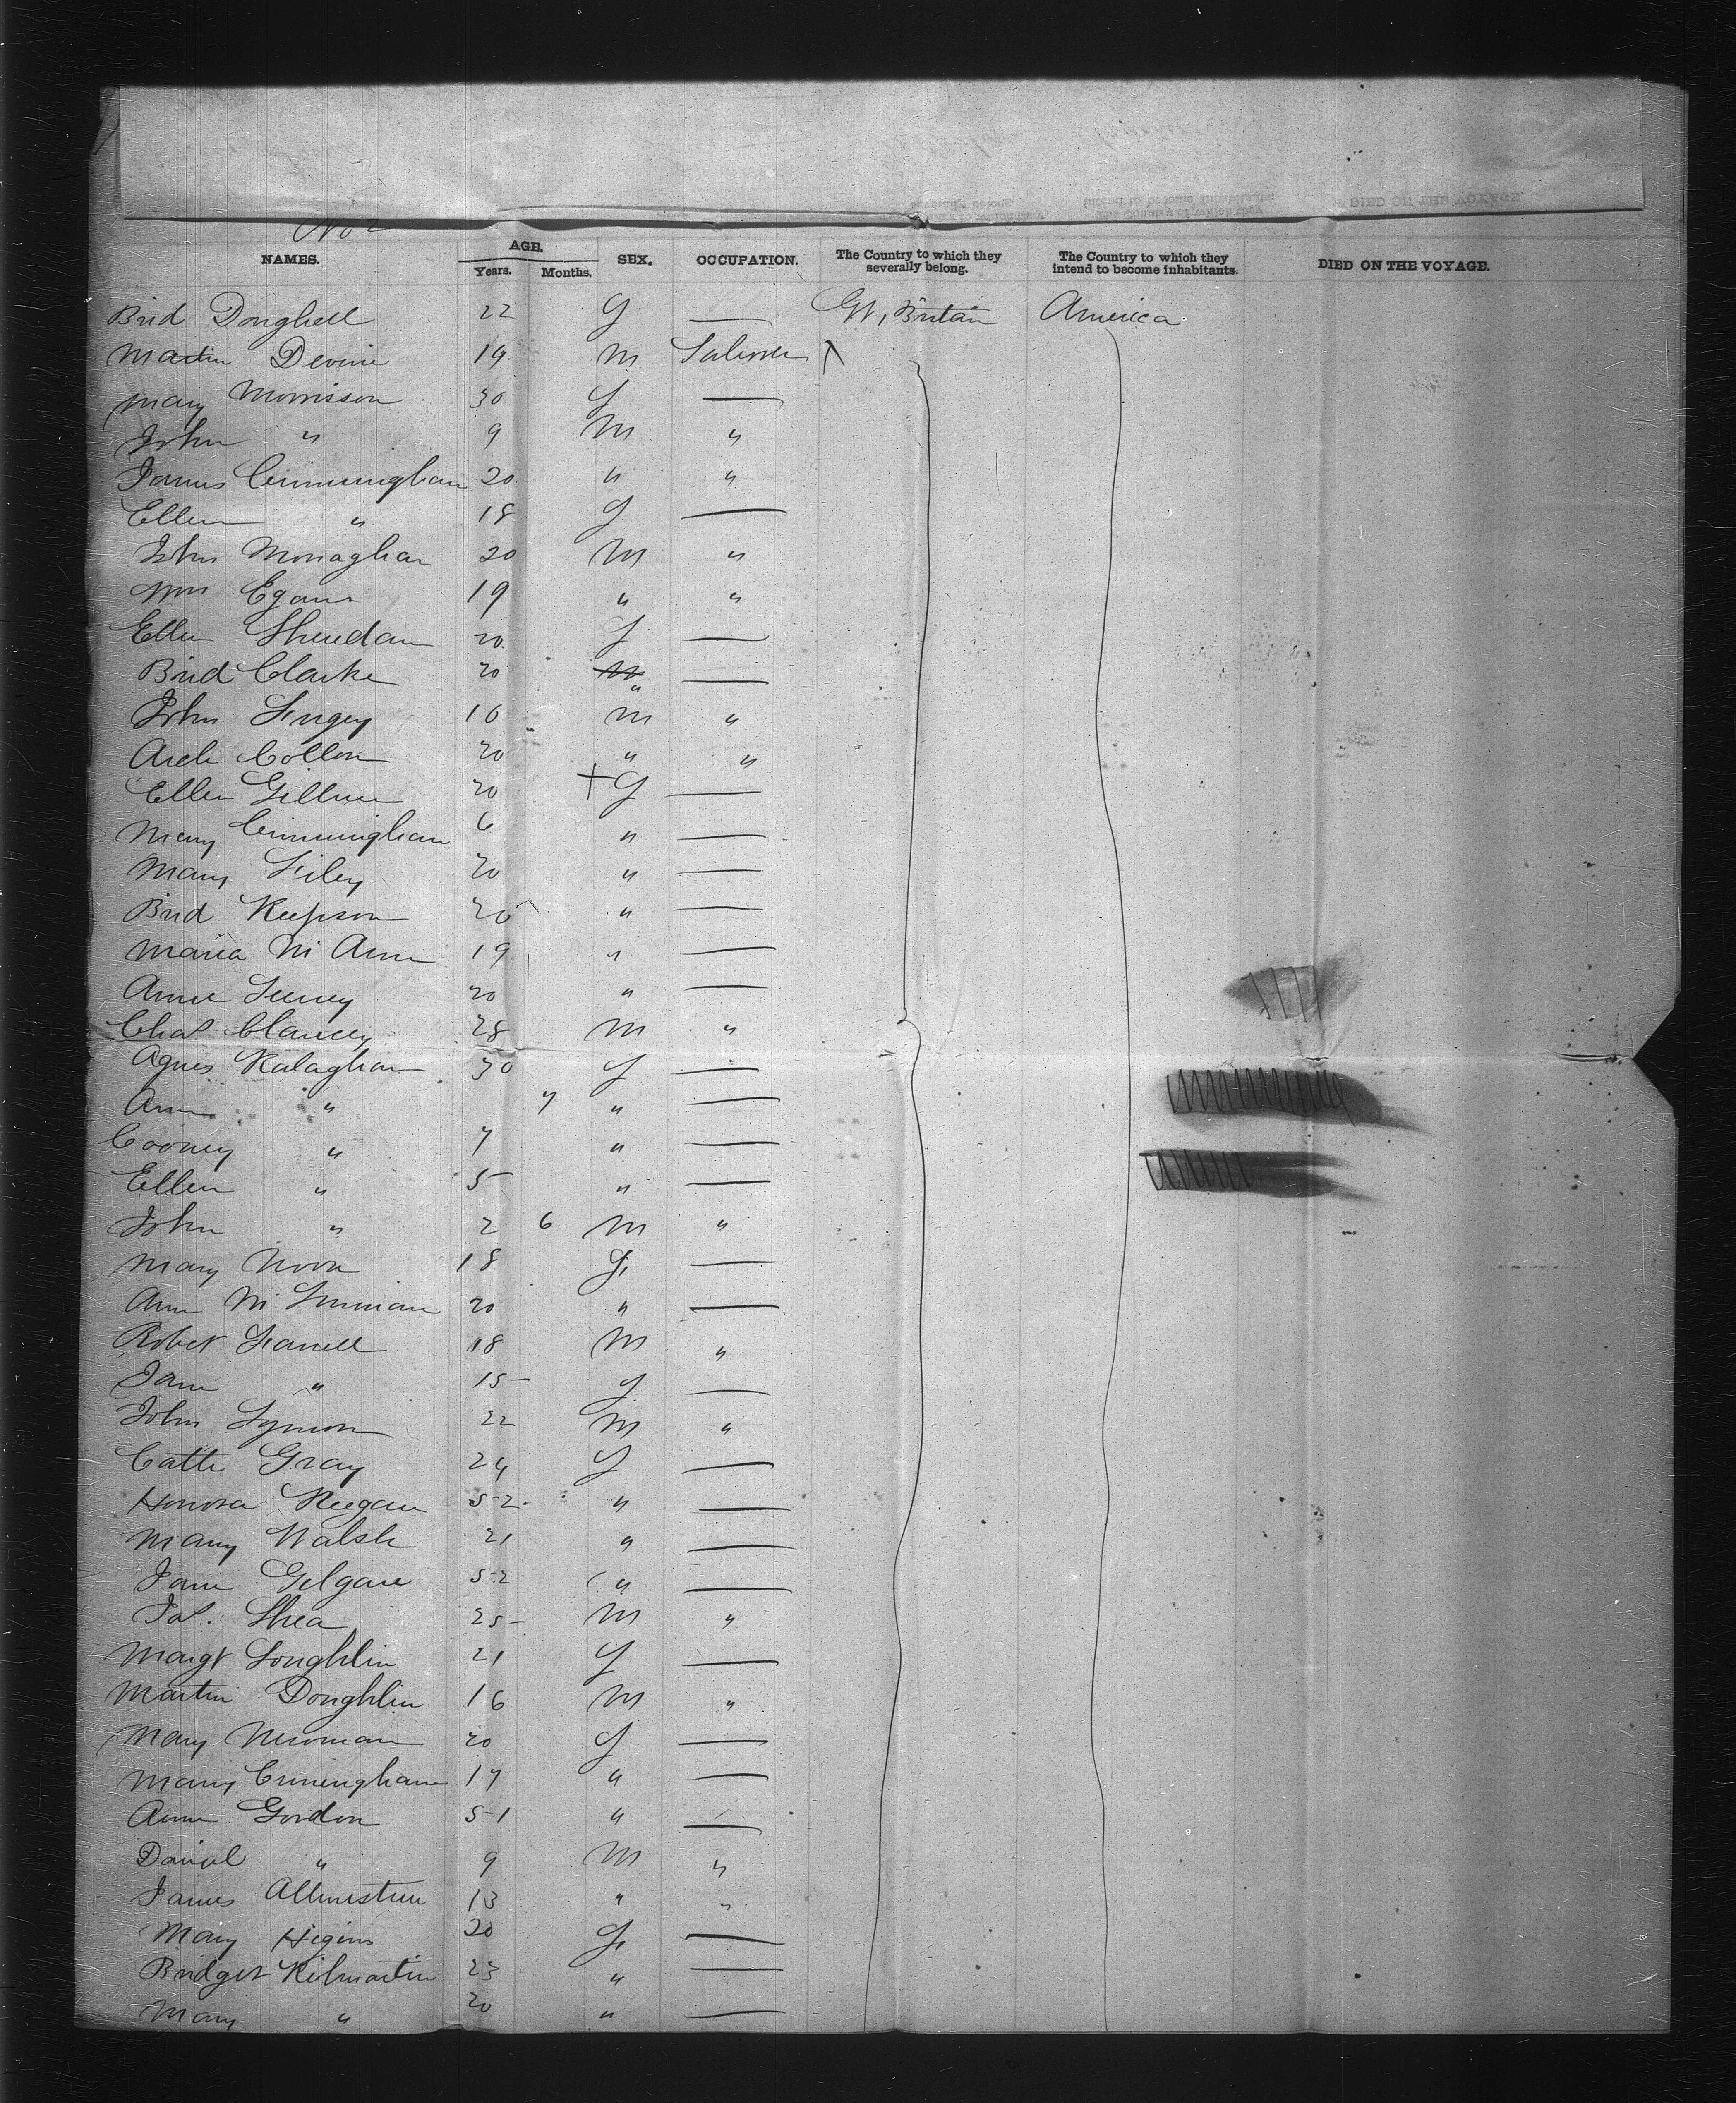 No 2
NAMES. AGE. SEX. OCCUPATION. The Country to which they severally belong. The Country to which they intend to become inhabitants. DIED ON THE VOYAGE.
Years. Months.
Brid Donghell 22 f — Gt, Britain America
Martin Devine 19 m
Mary Morrison 30 f —
John " 9 m "
James Cunningham 20 " "
Ellen " 18 f —
John Monaghan 20 m "
Wm Egan 19 " "
Ellen Sheridan 20 f —
Brid Clarke 20 " —
John 16 m "
Arch Collon 20 " "
Ellen 20 + f —
Mary Cunningham 6 " —
Mary 20 " —
Brid Keepson 20 " —
Maria Mc Ann 19 " —
Anne 20 " —
Chas Clancey 28 m "
Agnes Kalaghan 30 f —
Ann " 7 " —
Cooney " 7 " —
Ellen " 5 " —
John " 2 6 m "
Mary Noon 18 f —
Ann Mc 20 " —
Robert Farrell 18 m "
Jane " 15 f —
John Lymon 22 m "
Cath Gray 24 f —
Honora Keegan 52 " —
Mary Walsh 21 " —
Jane Gilgan 52 " —
Jas. Shea 25 m "
Margt Loughlin 21 f —
Martin Doughlin 16 m "
Mary Newman 20 f —
Mary Cuningham 17 " —
Anne Gordon 51 " —
Daniel " 9 m "
James 13 " "
Mary Higins 20 f —
Bridget Kilmartin 23 " —
Mary " 20 " —